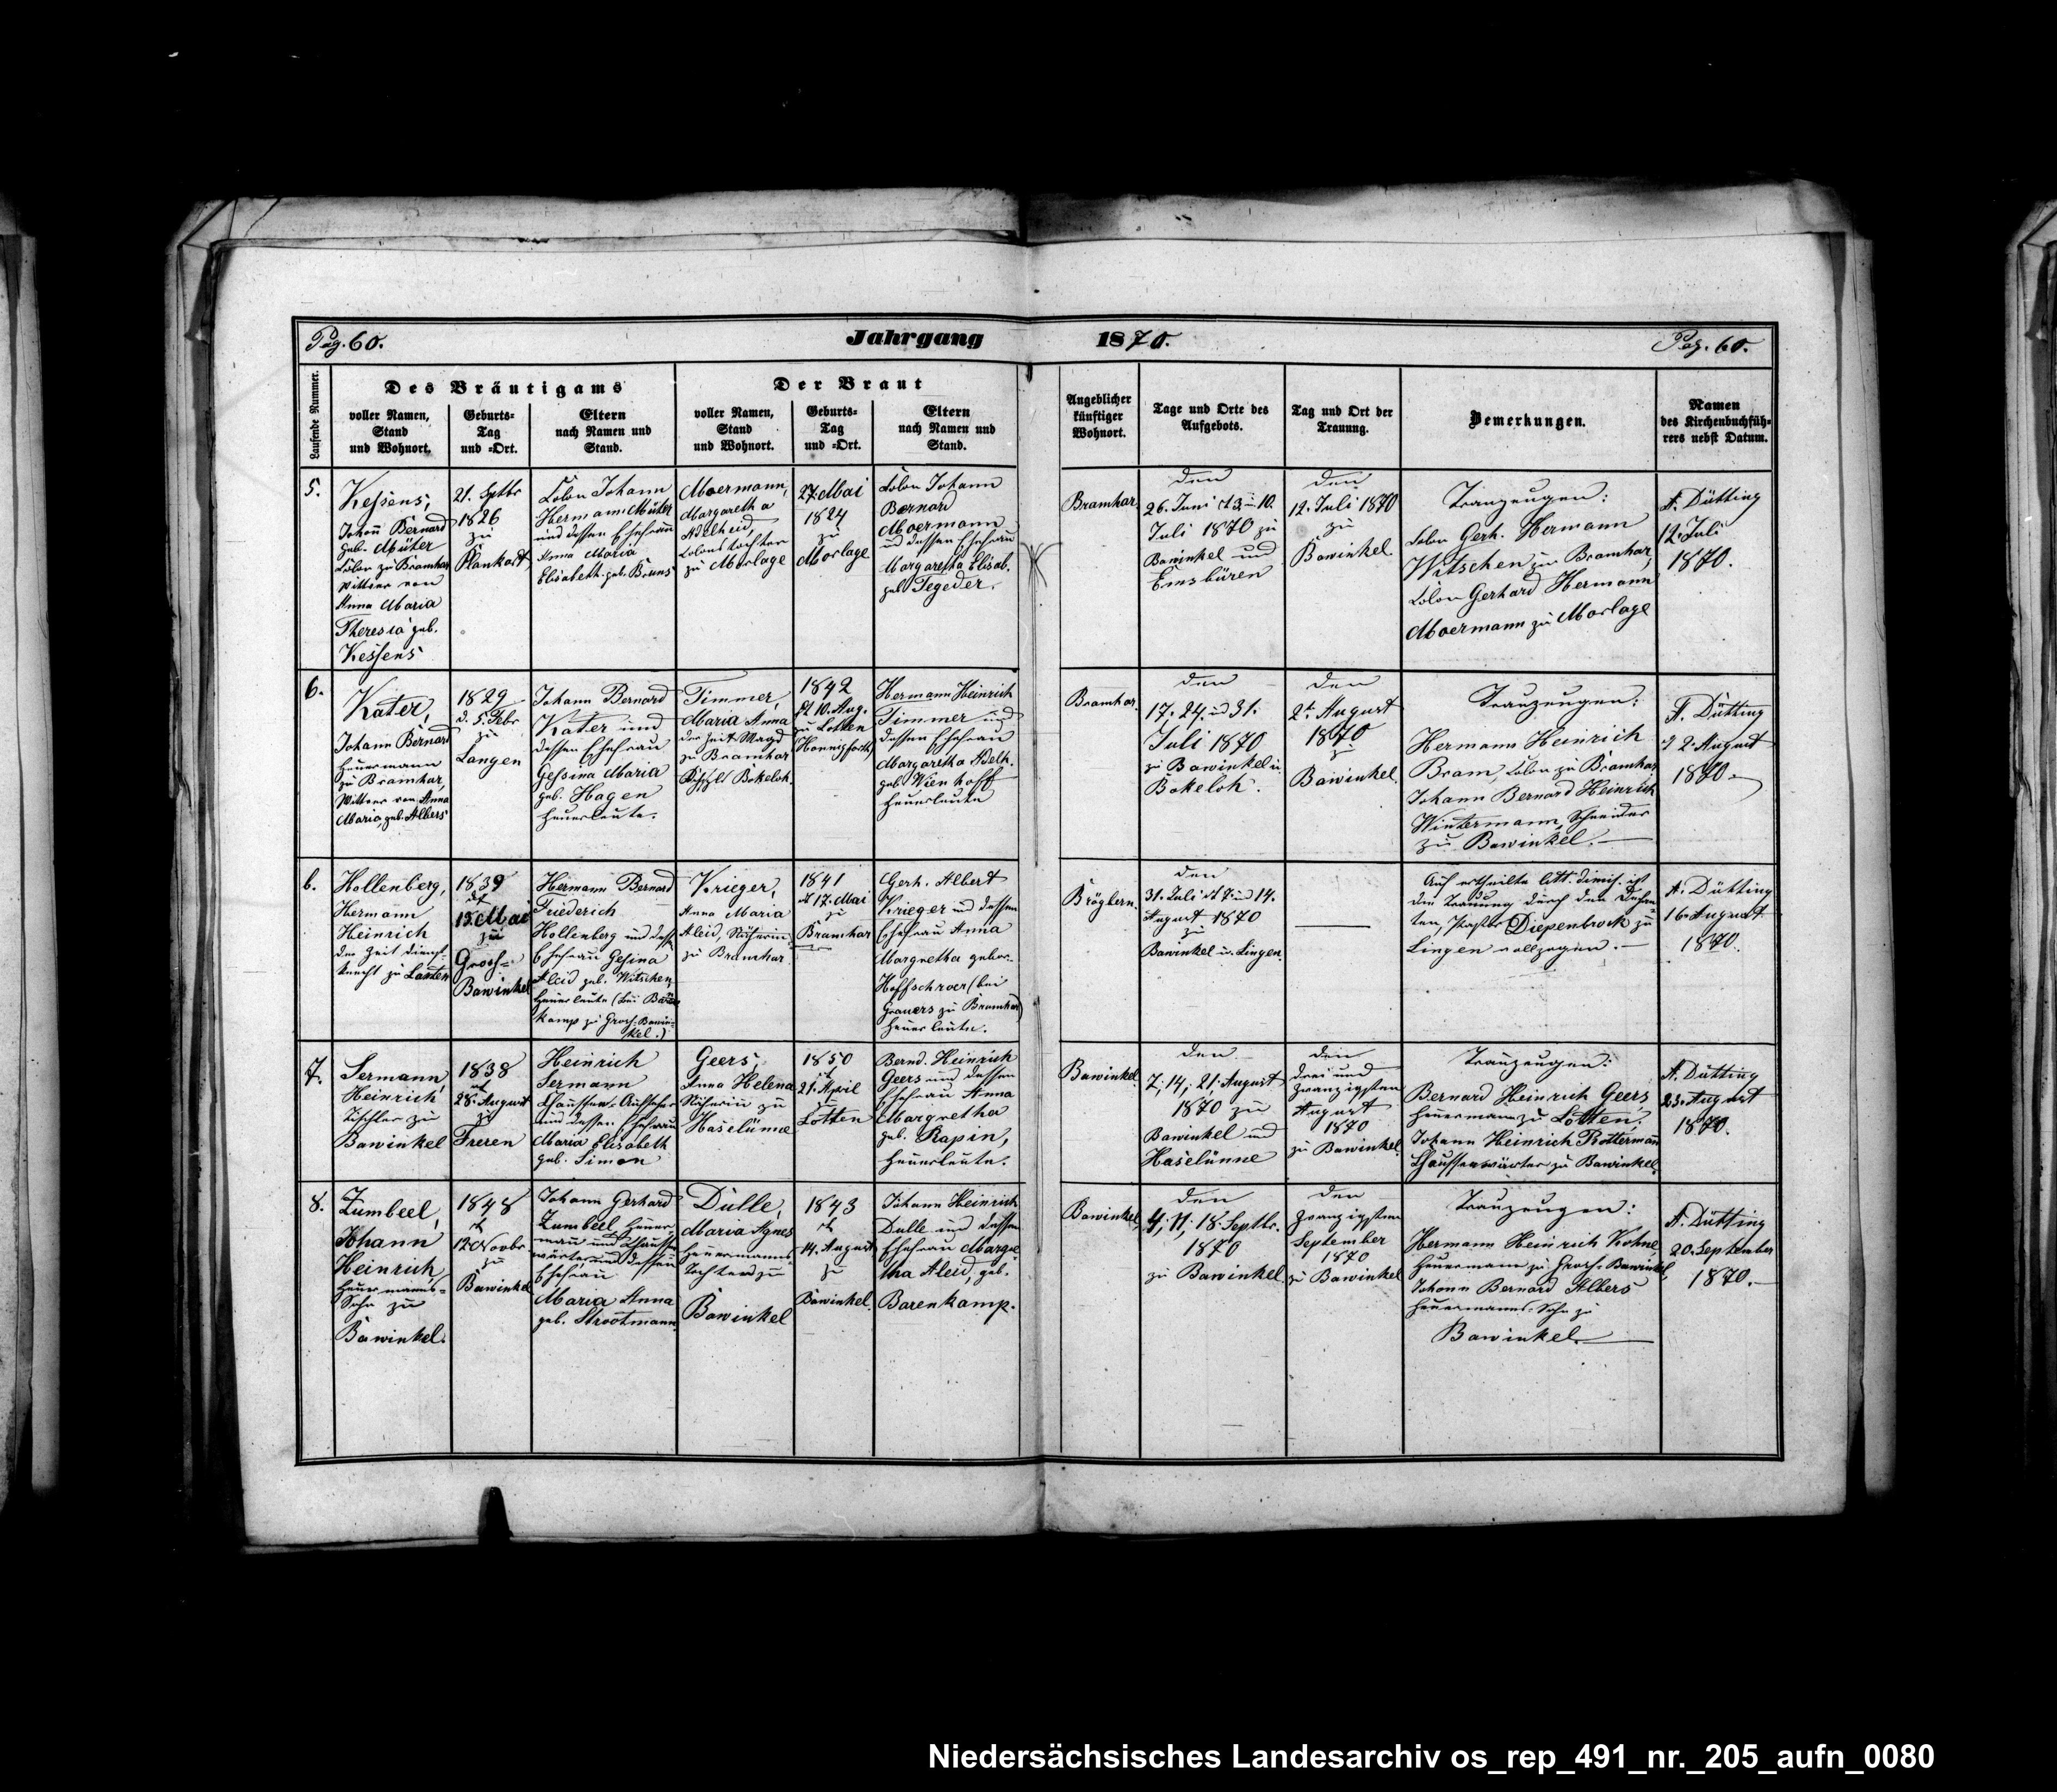 Pag. 60.
Jahrgang 1870.
Pag. 60.
Laufende Nummer.
Des Bräutigams
voller Namen,
Stand
und Wohnort.
Geburts-
Tag
und -Ort.
Eltern
nach Namen und
Stand.
Der Braut
voller Namen,
Stand
und Wohnort.
Geburts-
Tag
und -Ort.
Eltern
nach Namen und
Stand.
Angeblicher
künftiger
Wohnort.
Tage und Orte des
Aufgebots.
Tag und Ort der
Trauung.
Bemerkungen.
Namen
des Kirchenbuchfüh-
rers nebst Datum.
5.
Kessens,
Johann Bernard
geb. Müter
Colon zu Bramhar
Wittwer von
Anna Maria
Theresia geb.
Kessens
21. Septbr
1826
zu
Plankort
Colon Johann
Hermann Müter
und dessen Ehefrau
Anna Maria
Elisabeth geb. Bruns
Moermann,
Margaretha
Adelheid,
Colonstochter
zu Morlage
27. Mai
1824
zu
Morlage
Colon Johann
Bernard
Moermann
und dessen Ehefrau
Margaretha Elisab.
geb. Tegeder.
Bramhar.
den
26. Juni 3. u 10.
Juli 1870 zu
Bawinkel und
Emsbüren
den
12. Juli 1870
zu
Bawinkel.
Trauzeugen:
Colon Gerh. Hermann
Witschen zu Bramhar,
Colon Gerhard Hermann
Moermann zu Morlage
A. Dütting
12. Juli
1870.
6.
Kater,
Johann Bernard
Heuermann
zu Bramhar,
Wittwer von Anna
Maria, geb. Albers
1829
d. 5. Febr
zu
Langen
Johann Bernard
Kater und
dessen Ehefrau
Gessina Maria
geb. Hagen
Heuerleute.
Timmer,
Maria Anna
der Zeit Magd
zu Bramhar
Bokeloh.
1842
10. Aug.
zu Lotten
Hermann Heinrich
Timmer und
dessen Ehefrau
Margaretha Adelh.
geb. Wienhoff
Heuerleute
Bramhar.
den
17. 24. und 31.
Juli 1870
zu Bawinkel u.
Bokeloh.
den
2. August
1870
zu
Bawinkel.
Trauzeugen:
Hermann Heinrich
Bram, Colon zu Bramhar
Johann Bernard Heinrich
Wintermann, Schneider
zu Bawinkel.
A. Dütting
2. August
1870
6.
Hollenberg,
Hermann
Heinrich
der Zeit Dienst-
knecht zu Laxten
1839
12 Mai
zu
Gross-
Bawinkel
Hermann Bernard
Friederich
Hollenberg und dess.
Ehefrau Gesina
Aleid geb. Witschen
Heuerleute (bei Baren-
kamp zu Gross-Bawin-
kel.)
Krieger,
Anna Maria
Aleid, Näherin
zu Bramhar
1841
17. Mai
zu
Bramhar
Gerh. Albert
Krieger und dessen
Ehefrau Anna
Margretha gebor.
Hoffschroer (bei
Grauers zu Bramhar)
Heuerleute.
Brögbern.
den
31. Juli 7. und 14.
August 1870
zu
Bawinkel u. Lingen.
Auf ertheilte litt. dimiss. ist
die Trauung durch den Dechan-
ten, Pastor Diepenbrock zu
Lingen vollzogen.
A. Dütting
16. August
1870.
7.
Sermann,
Heinrich
Tischler zu
Bawinkel
1838
28. August
zu
Freren
Heinrich
Sermann
Chaussee-Aufseher
und dessen Ehefrau
Maria Elisabeth
geb. Simon
Geers,
Anna Helena
Näherin zu
Haselünne
1850
21. April
zu
Lotten
Bernd. Heinrich
Geers und dessen
Ehefrau Anna
Margretha
geb. Rapin,
Heuerleute.
Bawinkel.
den
7, 14, 21, August
1870 zu
Bawinkel und
Haselünne
den
drei und
zwanzigsten
August
1870
zu Bawinkel.
Trauzeugen:
Bernard Heinrich Geers
Heuermann zu Lotten,
Johann Heinrich Rottermann
Chausseewärter zu Bawinkel.
A. Dütting
23. August
1870.
8.
Zumbeel,
Johann
Heinrich,
Heuermanns-
Sohn zu
Bawinkel.
1848
12 Novbr
zu
Bawinkel
Johann Gerhard
Zumbeel, Heuer-
mann und Chaussee-
wärter, und dessen
Ehefrau
Maria Anna
geb. Strootmann.
Dulle,
Maria Agnes
Heuermanns-
Tochter zu
Bawinkel
1843
14. August
zu
Bawinkel.
Johann Heinrich
Dulle und dessen
Ehefrau Margre-
tha Aleid, geb.
Barenkamp.
Bawinkel
den
4, 11, 18. Septbr.
1870
zu Bawinkel.
den
zwanzigsten
September
1870
zu Bawinkel
Trauzeugen:
Hermann Heinrich Kohne,
Heuermann zu Gross-Bawinkel,
Johann Bernard Albers
Heuermanns-Sohn zu
Bawinkel.
A. Dütting
20. September
1870.
Niedersächsisches Landesarchiv os_rep_491_nr._205_aufn_0080